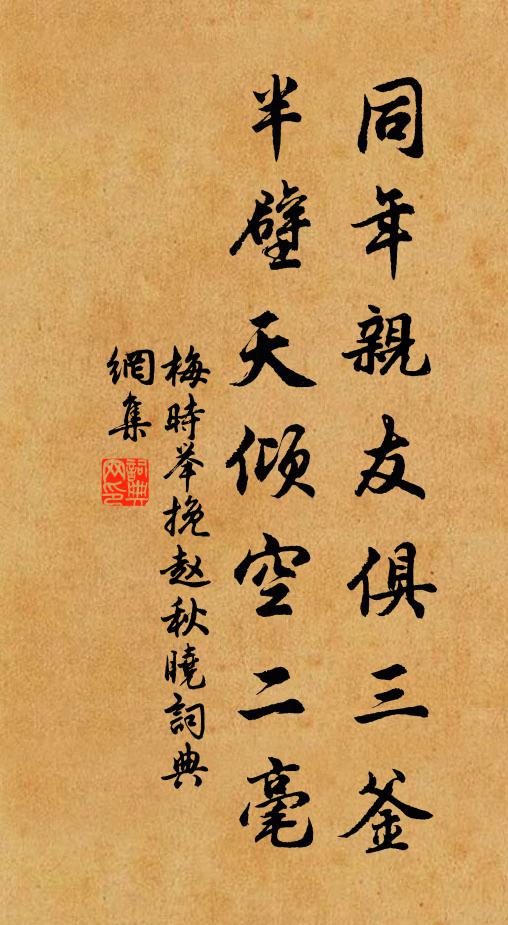 同年親友俱三釜
半壁天傾空二毫
梅時举挽赵秋曉詞典
網集
詞典網印